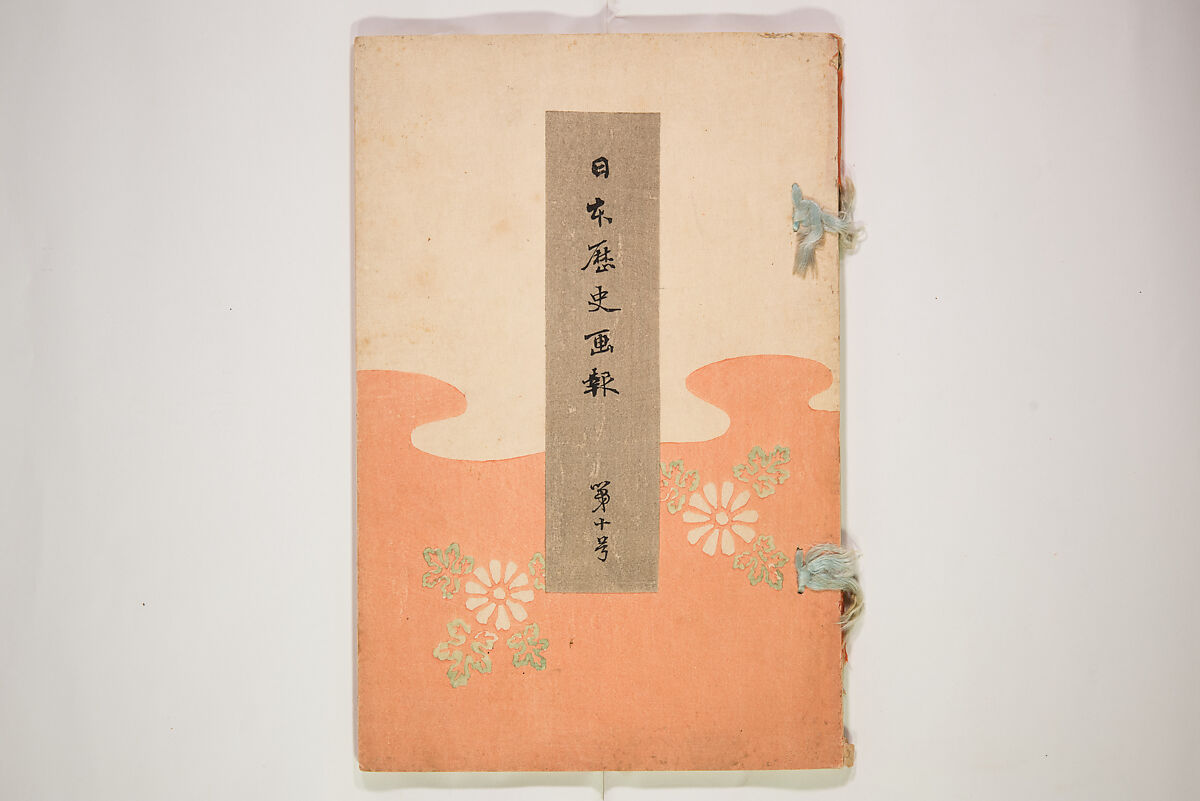 日本歴史画報
第十号